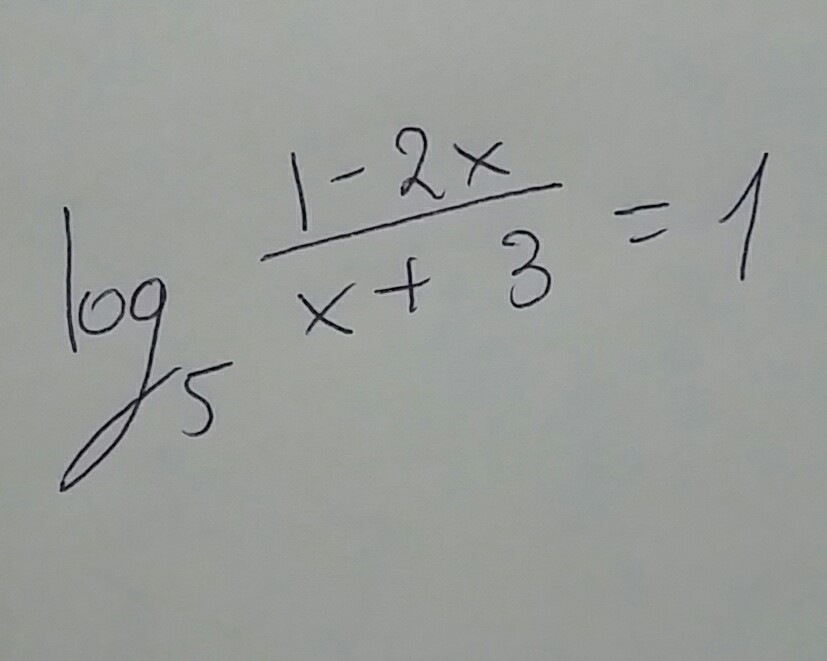 log₅ (1 - 2x)/(x + 3) = 1